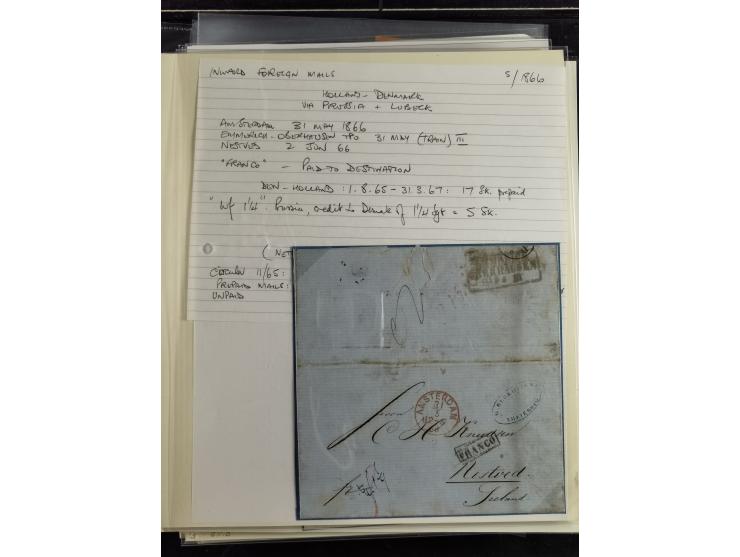 INWARD FOREIGN MAILS 5/1866
HOLLAND - DENMARK
VIA PRUSSIA + LUBECK
AMSTERDAM 31 MAY 1866
EMMERICH-OBERHAUSEN TPO 31 MAY (TRAIN) III
NESTVED 2 JUN 66
"FRANCO" - PAID TO DESTINATION
DEN - HOLLAND : 1.8.65 - 31.3.67 : 17 Sk. prepaid
"Wf 1¼" Prussia, credit to Denmark of 1¼ Sgr = 5 Sk.
(NET
CIRCULAR 11/65:
PREPAID MAILS:
UNPAID
AMSTERDAM
FRANCO
Nestved.
Seeland